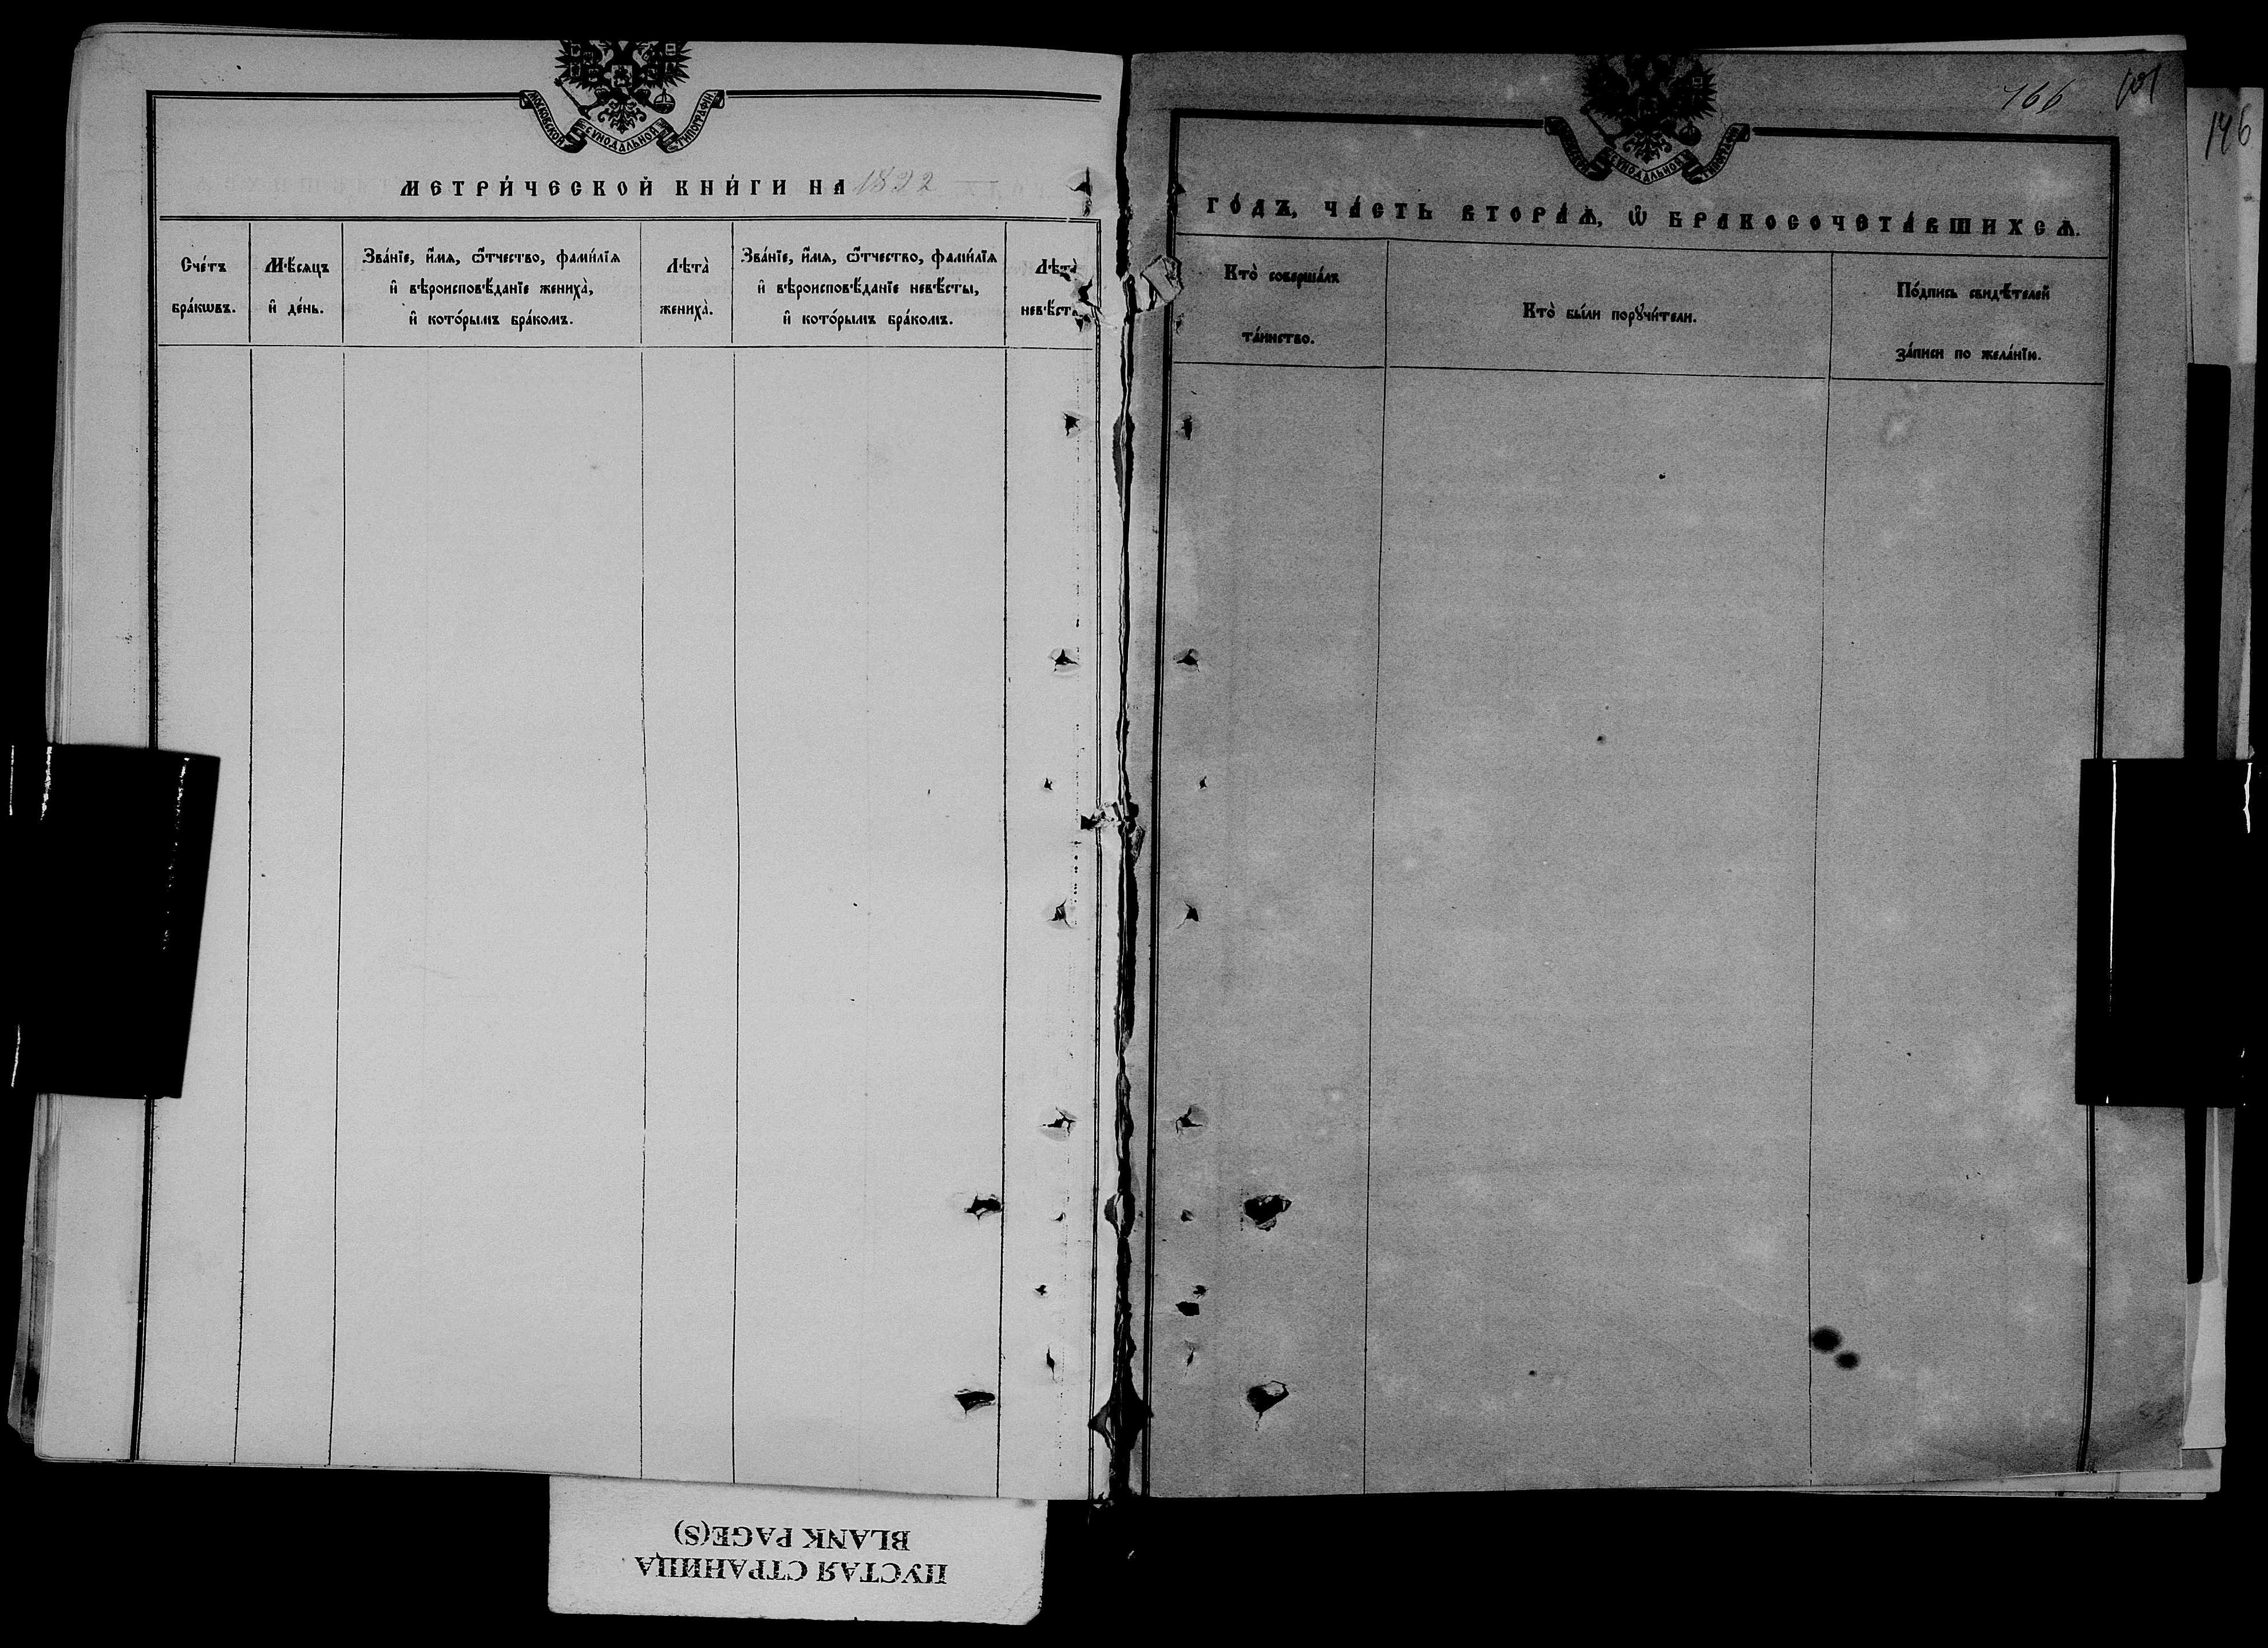 МОСКОВСКОЙ СѴНОДАЛЬНОЙ ТИПОГРАФІИ
МЕТРИ́ЧЕСКОЙ КНИ́ГИ НА 1892
Сче́тъ
бра́кωвъ.
Мѣ́сяцъ
и҆ де́нь.
Зва́нїе, и҆́мѧ, ѻ҆́тчество, фами́лїѧ
и҆ вѣроисповѣ́данїе жениха̀,
и҆ кото́рымъ бра́комъ.
Лѣта̀
жениха̀.
Зва́нїе, и҆́мѧ, ѻ҆́тчество, фами́лїѧ
и҆ вѣроисповѣ́данїе невѣ́сты,
и҆ кото́рымъ бра́комъ.
Лѣта̀
невѣ́ст
166
146
СѴНОДАЛЬНОЙ ТИПОГРАФІИ
ГО́ДЪ, ЧА́СТЬ ВТОРА́Ѧ, Ѡ҆ БРАКОСОЧЕТА́ВШИХСѦ.
Кто̀ соверша́лъ
та́инство.
Кто̀ бы́ли порꙋчи́тели.
По́дпись свидѣ́телей
за́писи по жела́нїю.
ПУСТАЯ СТРАНИЦА
BLANK PAGE(S)